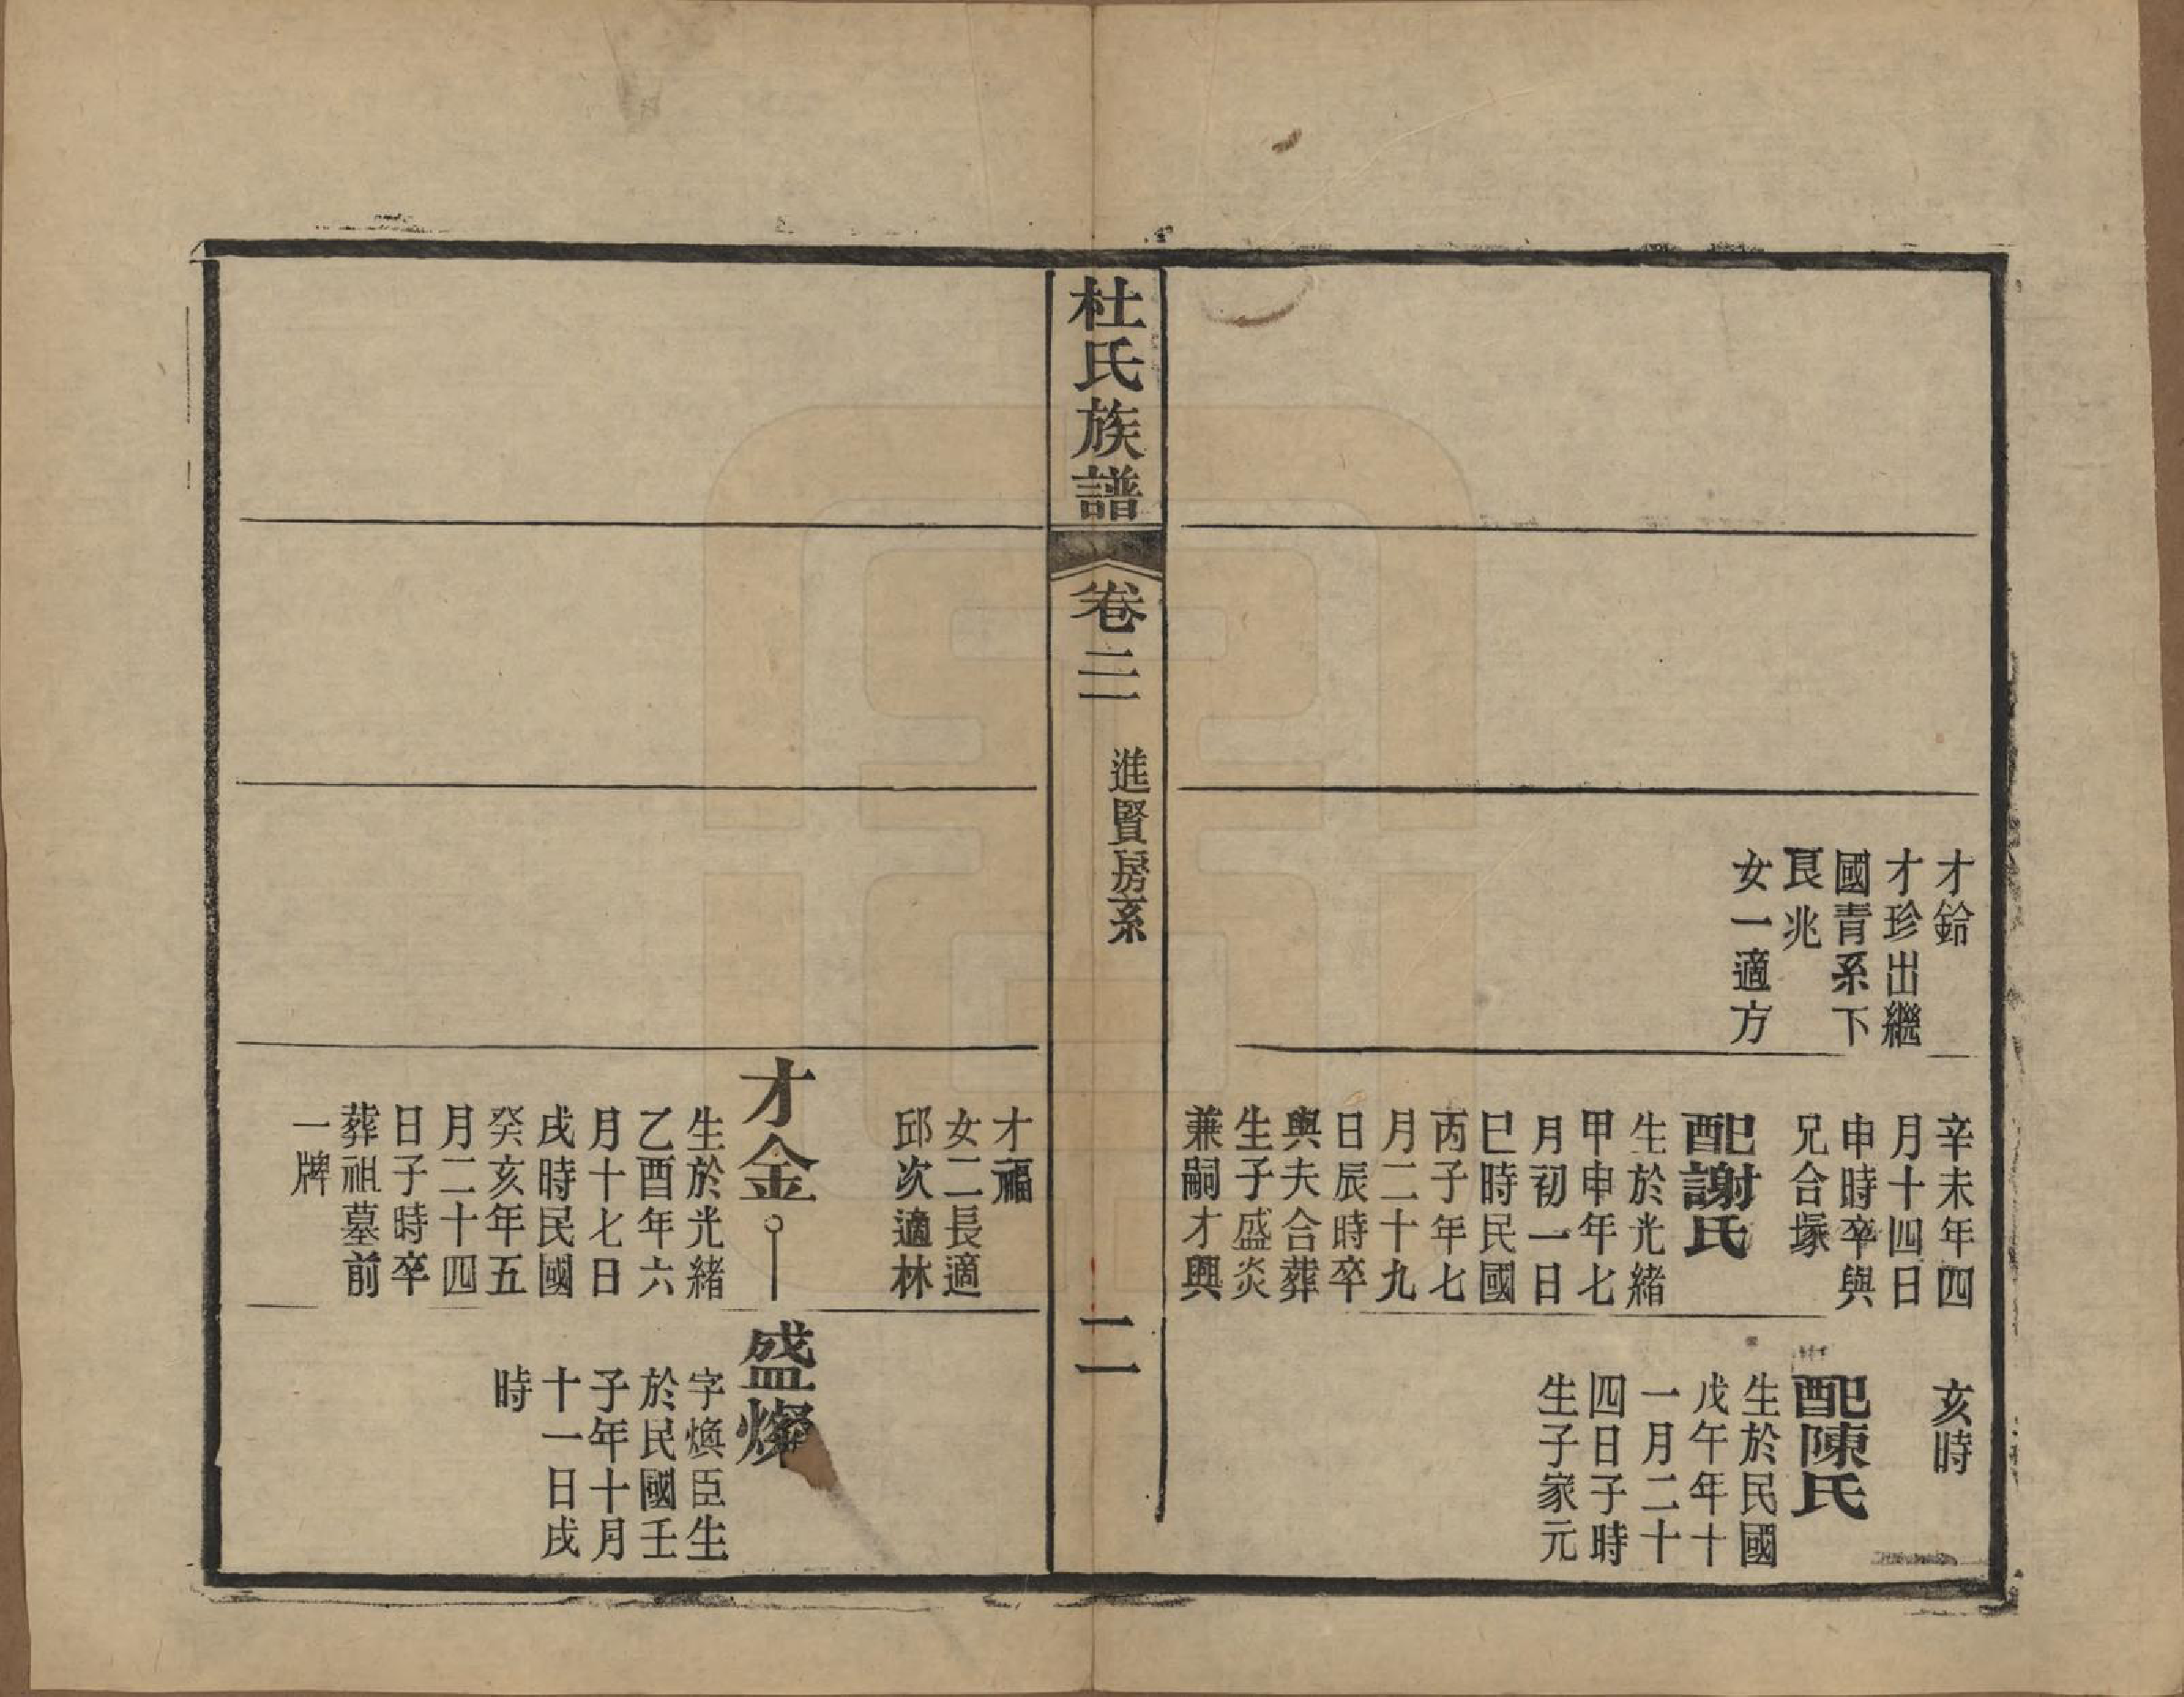 才鈴
才珍出繼
國青系下
艮兆
女一適方
辛未年四
月十四日
申時卒與
兄合塚
配謝氏
生於光緒
甲申年七
月初一日
巳時民國
丙子年七
月二十九
日辰時卒
與夫合葬
生子盛炎
兼嗣才興
亥時
配陳氏
生於民國
戊午年十
一月二十
四日子時
生子家元
杜氏族譜
卷二
進賢房系
二
才福
女二長適
邱次適林
才金
生於光緒
乙酉年六
月十七日
戌時民國
癸亥年五
月二十四
日子時卒
葬祖墓前
一牌
盛燦
字煥臣生
於民國壬
子年十月
十一日戌
時